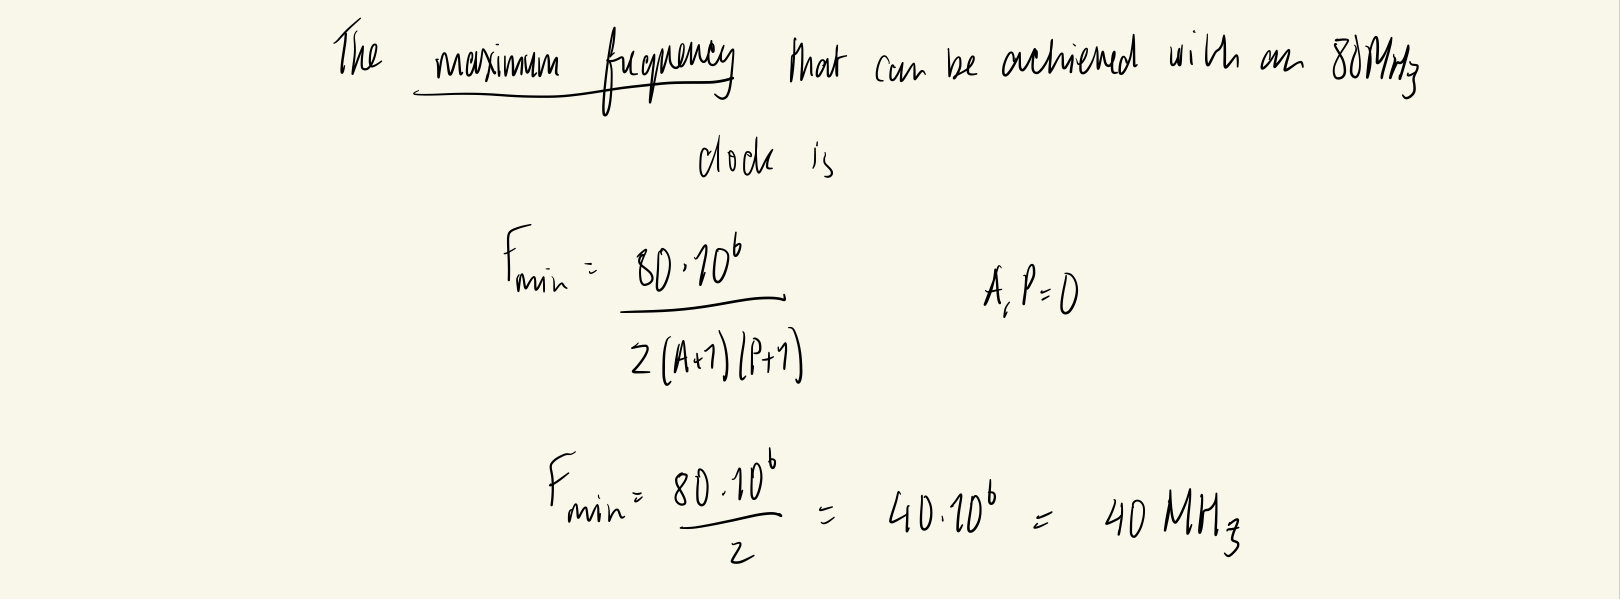 The maximum frequency that can be achieved with an 80MHz
clock is
Fmin = 80·10⁶ / 2(A+1)(P+1) A, P=0
Fmin = 80·10⁶ / 2 = 40·10⁶ = 40 MHz